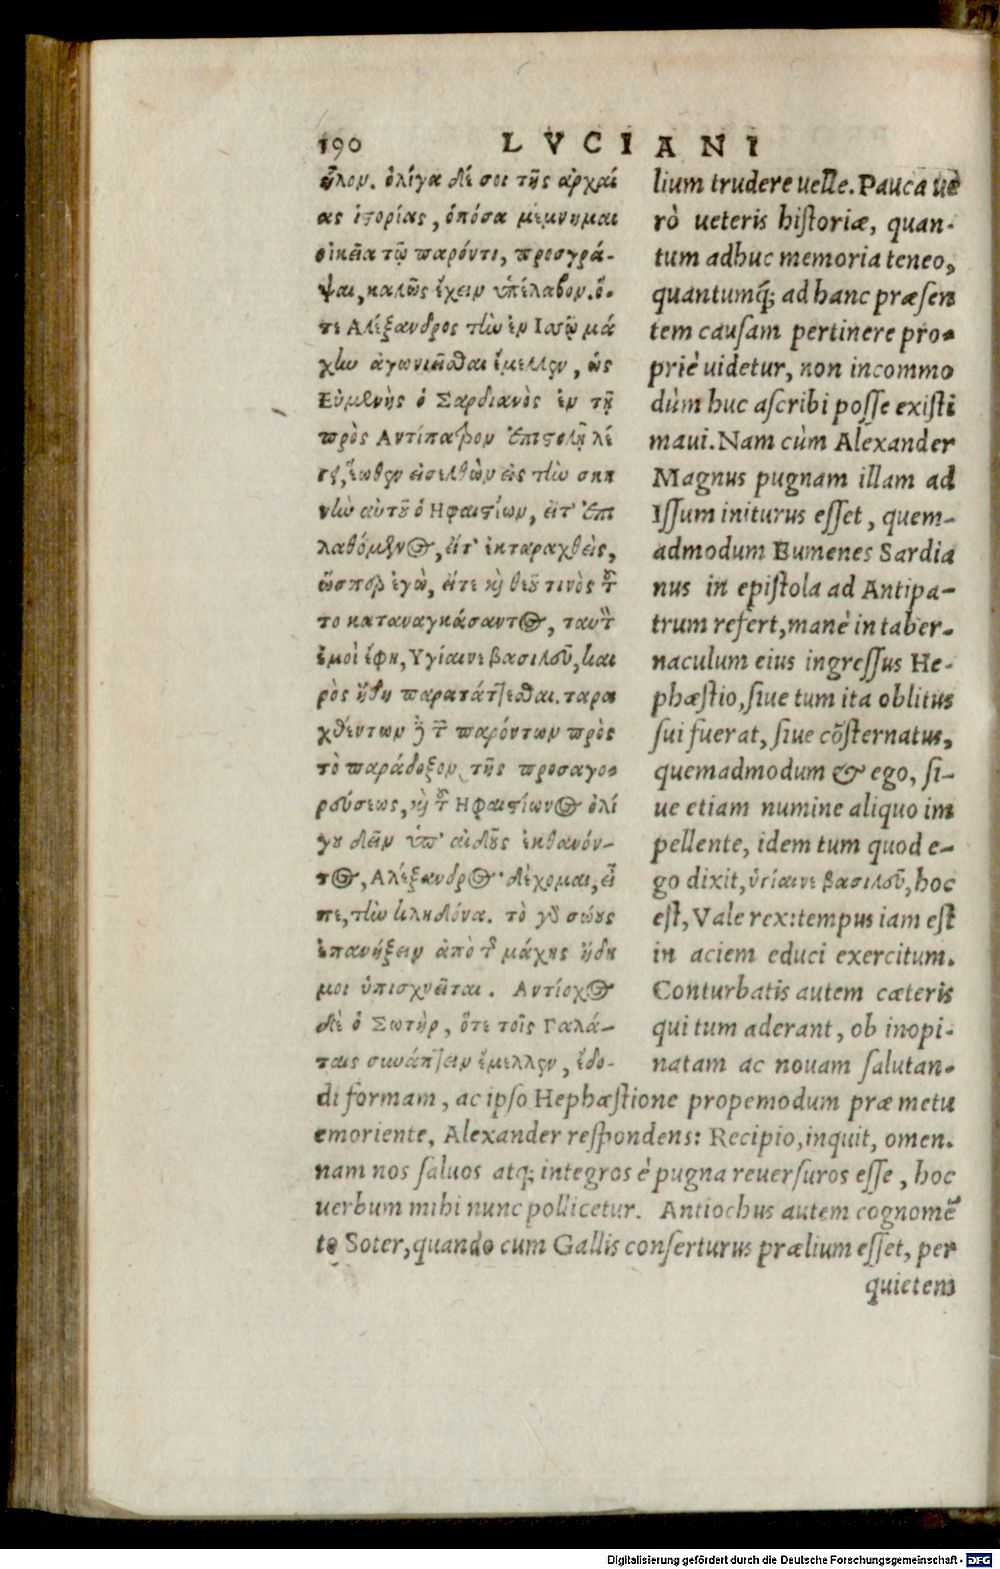 190 LVCIANI
ἧλον. ὀλίγα δέ σοι τῆς ἀρχαί
ας ἱστορίας, ὁπόσα μέμνημαι
οἰκεῖα τῷ παρόντι, προσγρά-
ψαι, καλῶς ἔχειν ὑπέλαβον. ὅ-
τε Αλέξανδρος τὴν ἐν Ισσῷ μά
χην ἀγωνιεῖσθαι ἔμελλεν, ὡς
Εὐμένης ὁ Σαρδιανὸς ἐν τῇ
πρὸς Αντίπατρον Ἐπιστολῇ λέ
γει, ἕωθεν εἰσελθὼν εἰς τὴν σκη
νὴν αὐτοῦ ὁ Ηφαιστίων, εἴτ' Ἐπι
λαθόμενος, εἴτ' ἐκταραχθεὶς,
ὥσπερ ἐγὼ, εἴτε καὶ θεοῦ τινὸς τοῦ
το καταναγκάσαντος, ταυτὸν
ἐμοὶ ἔφη, Υγίαινε βασιλεῦ, και
ρὸς ἤδη παρατάττεσθαι. ταρα
χθέντων δὲ τῶν παρόντων πρὸς
τὸ παράδοξον τῆς προσαγο-
ρεύσεως, καὶ τοῦ Ηφαιστίωνος ὀλί
γου δεῖν ὑπ' αἰδοῦς ἐκθανόν-
τος, Αλέξανδρος· δέχομαι, εἶ
πε, τὴν κληδόνα. τὸ γὰρ σώους
ἐπανήξειν ἀπὸ τῆς μάχης ἤδη
μοι ὑπισχνεῖται. Αντίοχος
δὲ ὁ Σωτὴρ, ὅτε τοῖς Γαλά-
ταις συνάπτειν ἔμελλεν, ἔδο-
lium trudere uelle. Pauca ue
rò ueteris historiæ, quan-
tum adhuc memoria teneo,
quantumq́; ad hanc præsen
tem causam pertinere pro-
priè uidetur, non incommo
dùm huc ascribi posse existi
maui. Nam cùm Alexander
Magnus pugnam illam ad
Issum initurus esset, quem-
admodum Eumenes Sardia
nus in epistola ad Antipa-
trum refert, manè in taber-
naculum eius ingressus He-
phæstio, siue tum ita oblitus
sui fuerat, siue cõsternatus,
quemadmodum & ego, si-
ue etiam numine aliquo im
pellente, idem tum quod e-
go dixit, ὑγίαινε βασιλεῦ, hoc
est, Vale rex: tempus iam est
in aciem educi exercitum.
Conturbatis autem cæteris
qui tum aderant, ob inopi-
natam ac nouam salutan-
di formam, ac ipso Hephæstione propemodum præ metu
emoriente, Alexander respondens: Recipio, inquit, omen.
nam nos saluos atq; integros è pugna reuersuros esse, hoc
uerbum mihi nunc pollicetur. Antiochus autem cognomẽ
to Soter, quando cum Gallis conserturus prælium esset, per
quietem
Digitalisierung gefördert durch die Deutsche Forschungsgemeinschaft - DFG